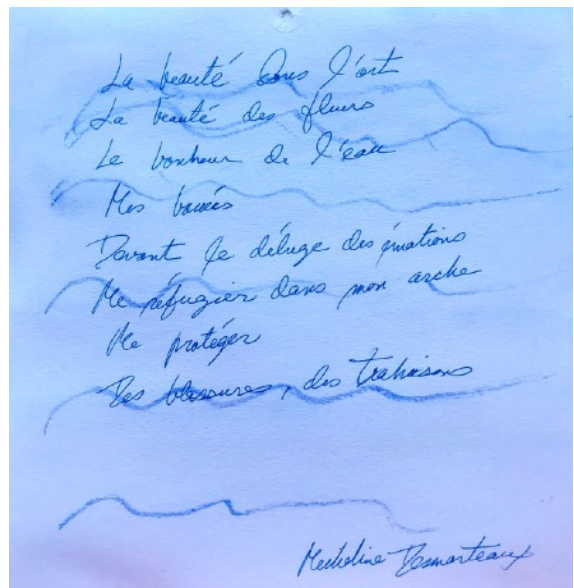 La beauté dans l'art
La beauté des fleurs
Le bonheur de l'eau
Mes bouées
Devant le déluge des émotions
Me réfugier dans mon arche
Me protéger
Des blessures, des trahisons
Desmarteaux